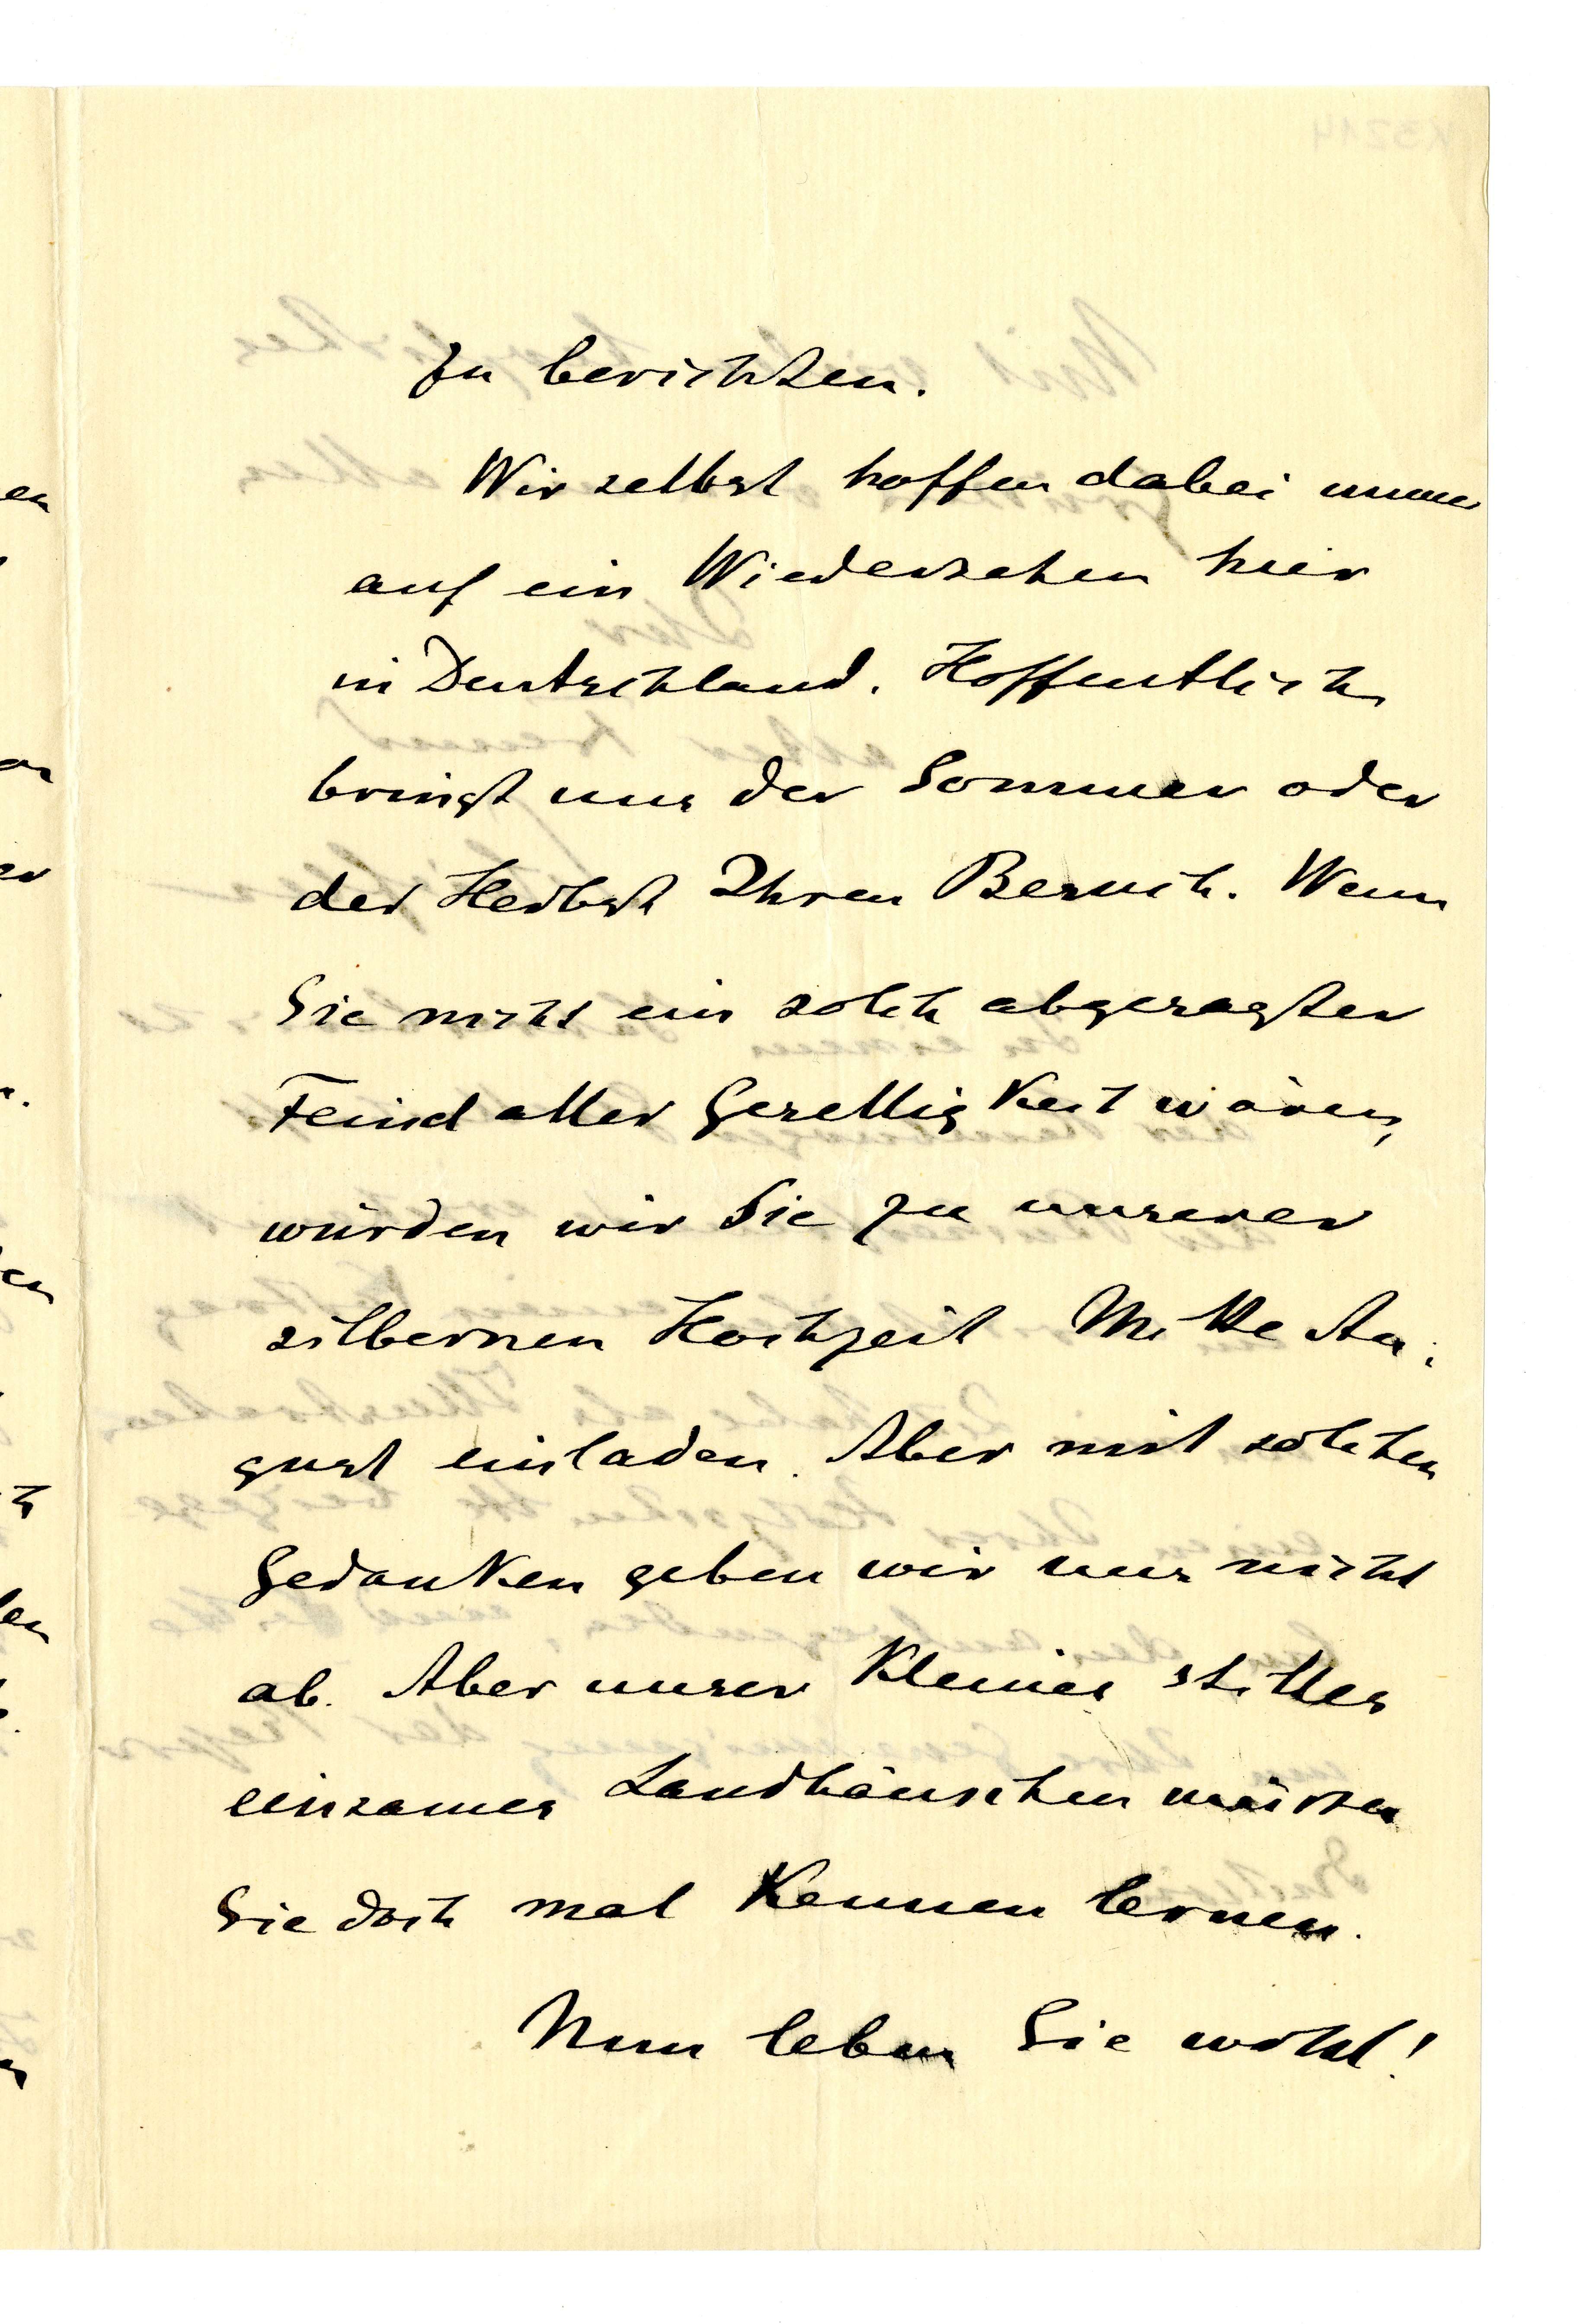 zu berichten.
Wir selbst hoffen dabei immer
auf ein Wiedersehen hier
in Deutschland. Hoffentlich
bringt uns der Sommer oder
der Herbst Ihren Besuch. Wenn
Sie nicht ein solch abgesagter
Feind aller Geselligkeit wären,
würden wir Sie zu unserer
silbernen Hochzeit Mitte Au-
gust einladen. Aber mit solchen
Gedanken geben wir uns nicht
ab. Aber unser kleines stilles
einsames Landhäuschen müssen
Sie doch mal kennen lernen.
Nun leben Sie wohl!